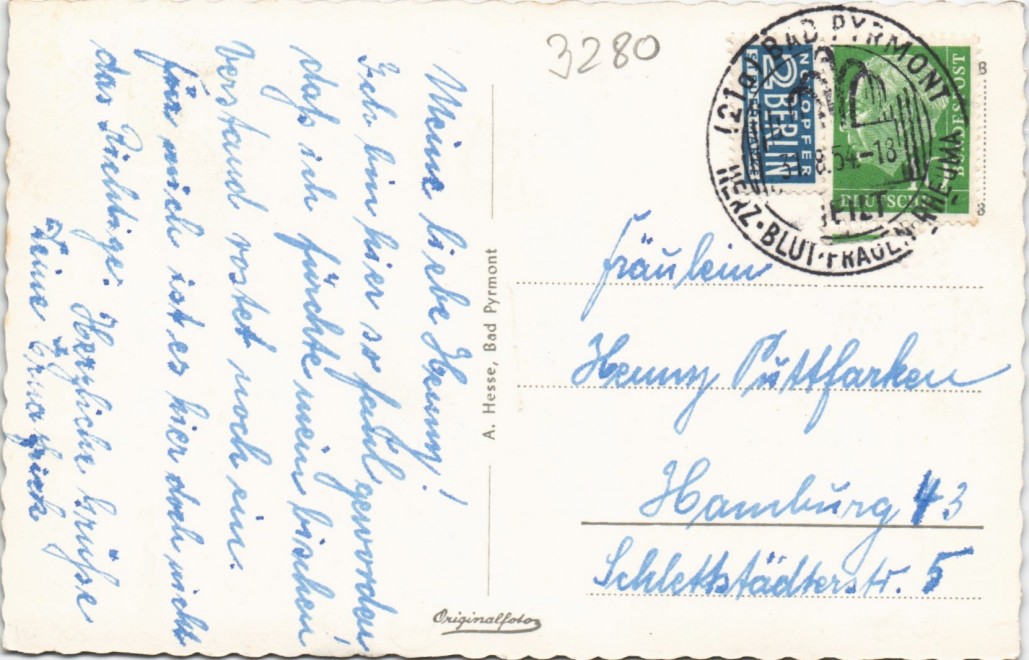 3280
Meine liebe Henny!
Ich bin hier so faul geworden
daß ich fürchte mein bischen
Verstand rostet noch ein.
für mich ist es hier doch nicht
das Richtige. Herzliche Grüße
Deine
NOTOPFER
2 BERLIN
(21a) BAD PYRMONT
8.54-18
HERZ·BLUT·FRAUEN·RHEUMA
DEUTSCHE
BUNDESPOST
A. Hesse, Bad Pyrmont
Fräulein
Henny Püttfarken
Hamburg 43
Schlettstädterstr. 5
Originalfoto